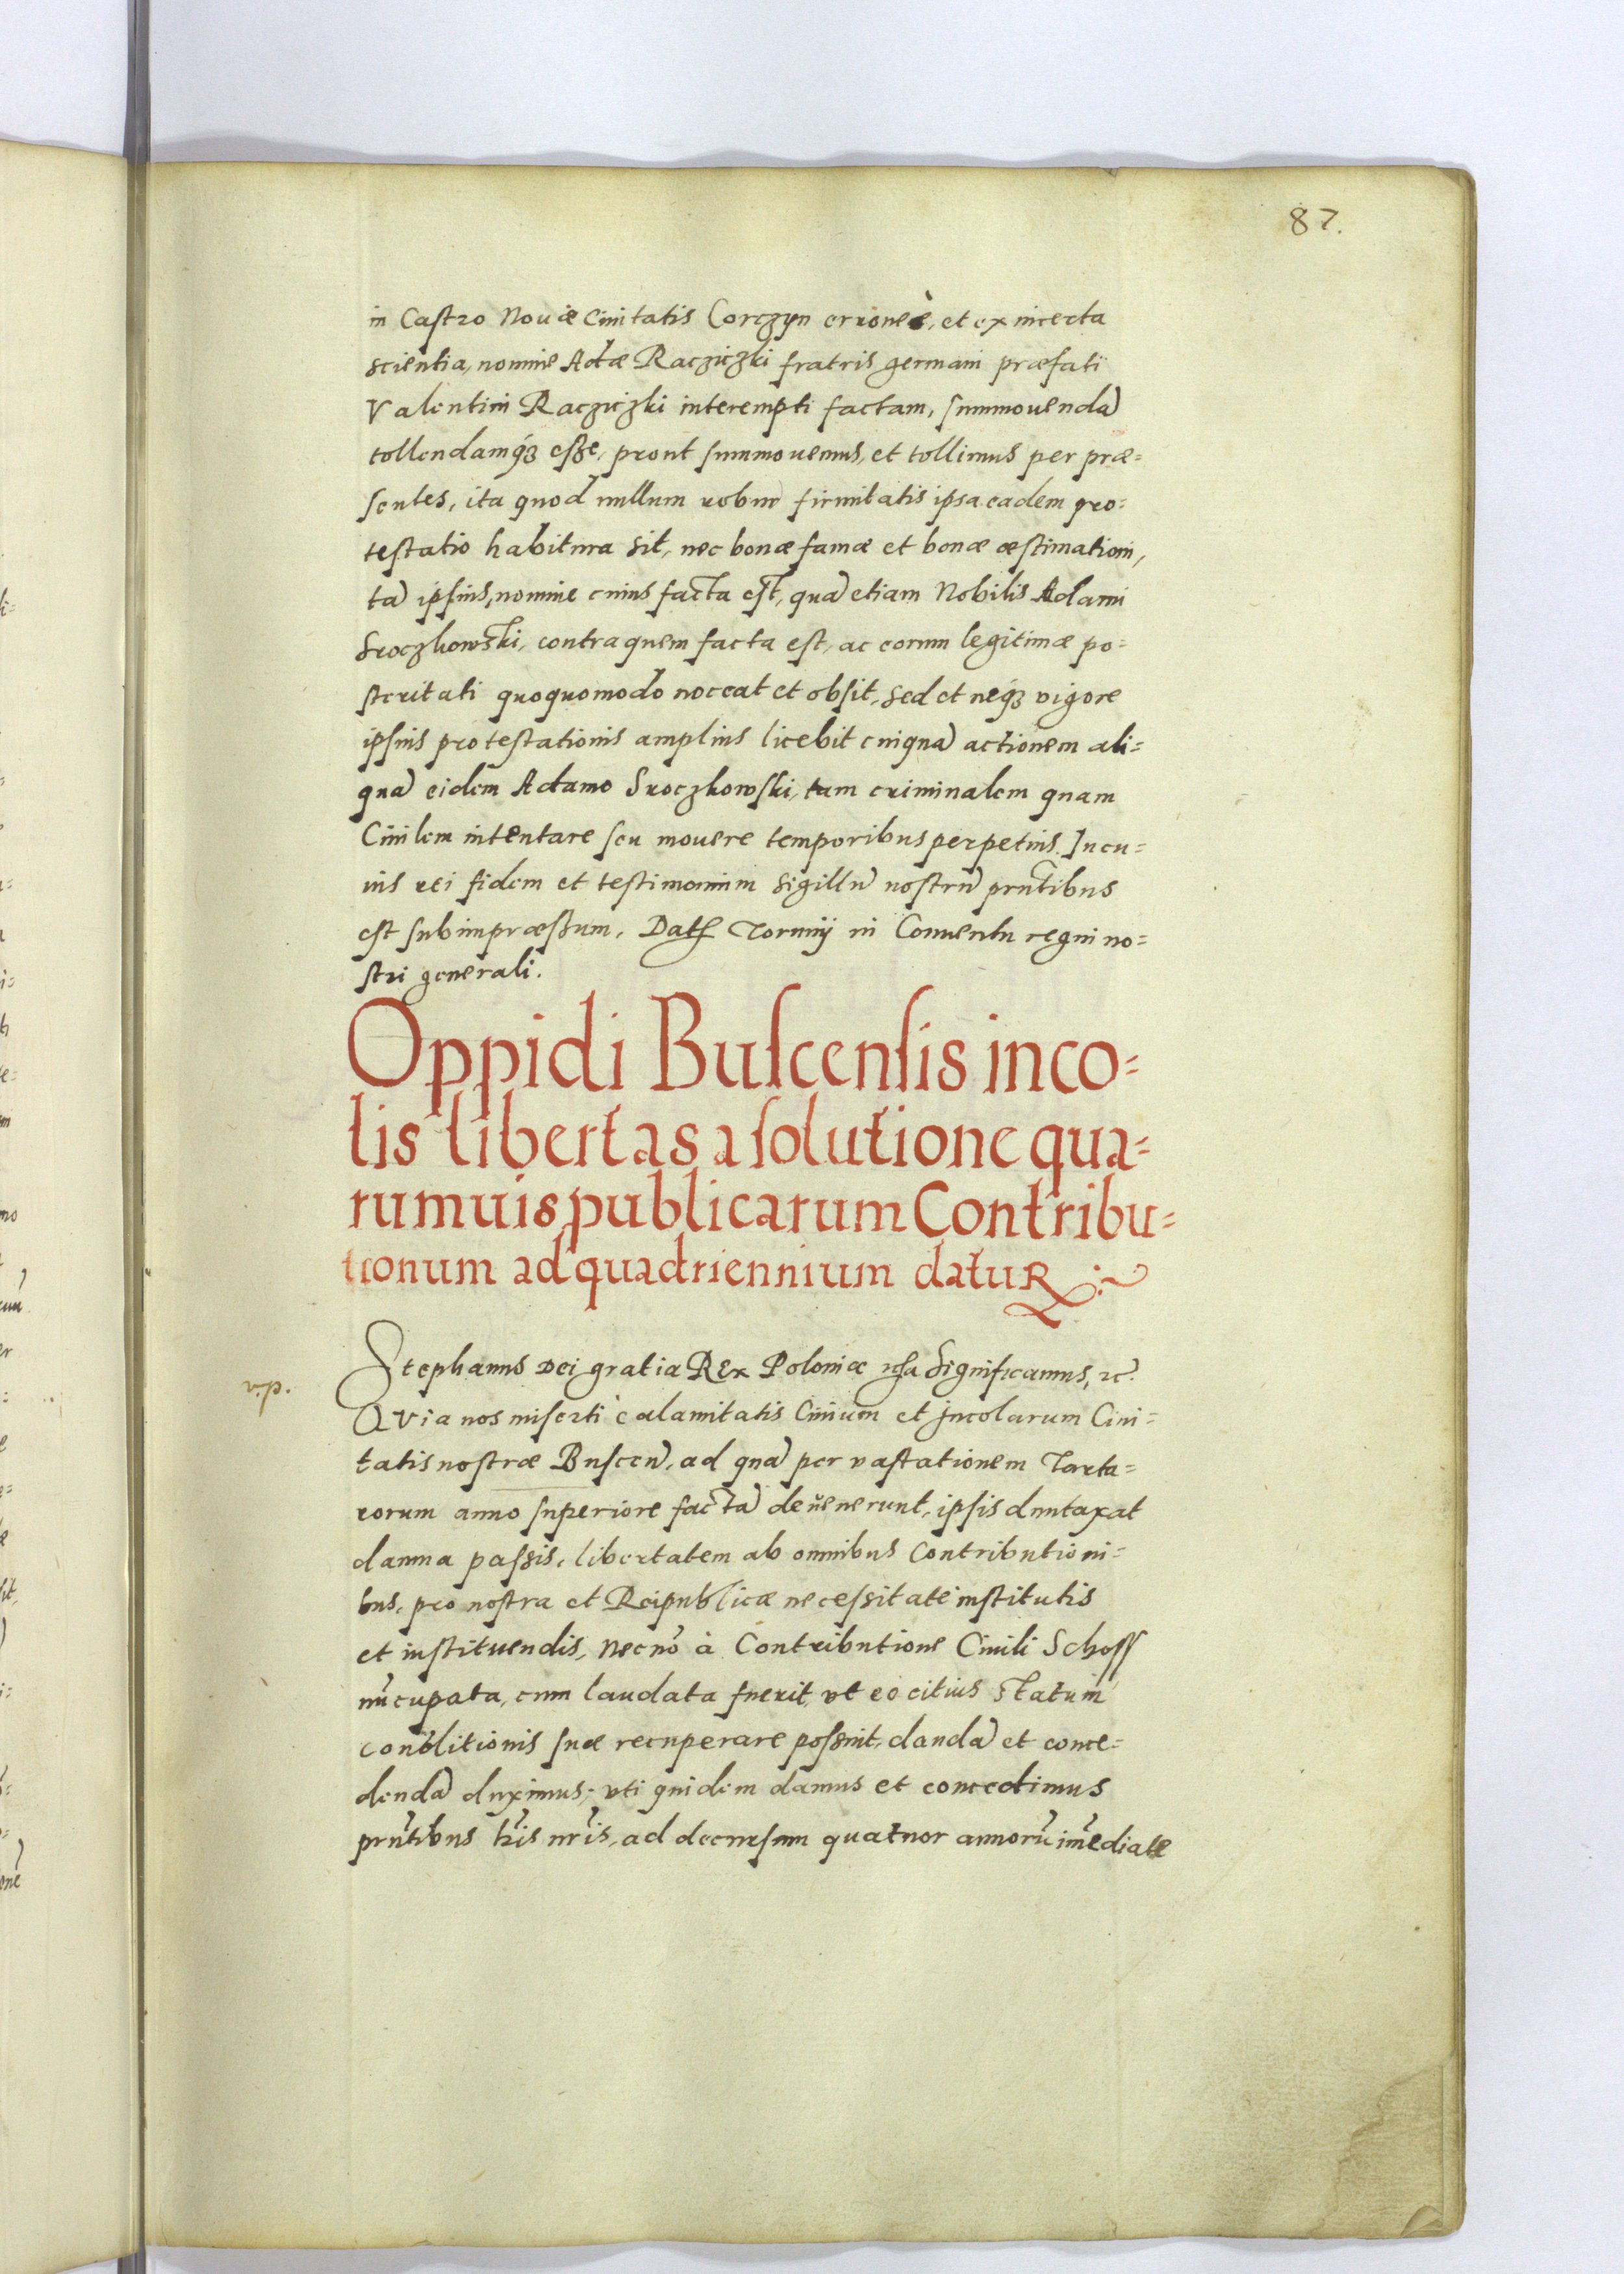 87.
in Castro Nouæ Ciuitatis Corczyn erroneè, et ex incerta
scientia, nomine Adæ Racziczki fratris germani præfati
Valentini Racziczki interempti factam, summouendã
tollendamq́ꝫ eße, prout summouemus, et tollimus per præ=
sentes, ita quod nullum robur firmitatis ipsa eadem pro=
testatio habitura sit, nec bonæ famæ et bonæ æstimationi,
tã ipsius, nomine cuius facta est, quã etiam Nobilis Adami
Sroczkowski, contra quem facta est, ac eorum legitimæ po=
steritati quoquomodo noceat et obsit, sed et neq́ꝫ vigore
ipsius protestationis amplius licebit cuiquã actionem ali=
quã eidem Adamo Sroczkowski, tam criminalem quam
Ciuilem intentare seu mouere temporibus perpetuis. In cu=
ius rei fidem et testimonium sigillũ nostrũ prñtibus
est subimpræßum. Datꝭ Torunij in Conuentu regni no=
stri generali.
Oppidi Buscensis inco=
lis libertas a solutione qua=
rumuis publicarum Contribu=
tionum ad quadriennium datur
v.p.
Stephanus Dei gratia Rex Poloniæ Significamus, ꝛc.
Qvia nos miserti calamitatis Ciuium et Incolarum Ciui=
tatis nostræ Buscen̄, ad quã per vastationem Tarta=
rorum anno superiore factã deuenerunt, ipsis duntaxat
damna passis, libertatem ab omnibus Contributioni=
bus, pro nostra et Reipublicæ necessitate institutis
et instituendis, necnõ à Contributione Ciuili Schoss
nũcupata, cum laudata fuerit, vt eo citius statum
conditionis suæ recuperare possint, dandã et conce=
dendã duximus; vti quidem damus et concedimus
prñtibus lr̃is nr̃is, ad decursum quatuor annorũ im̃ediate